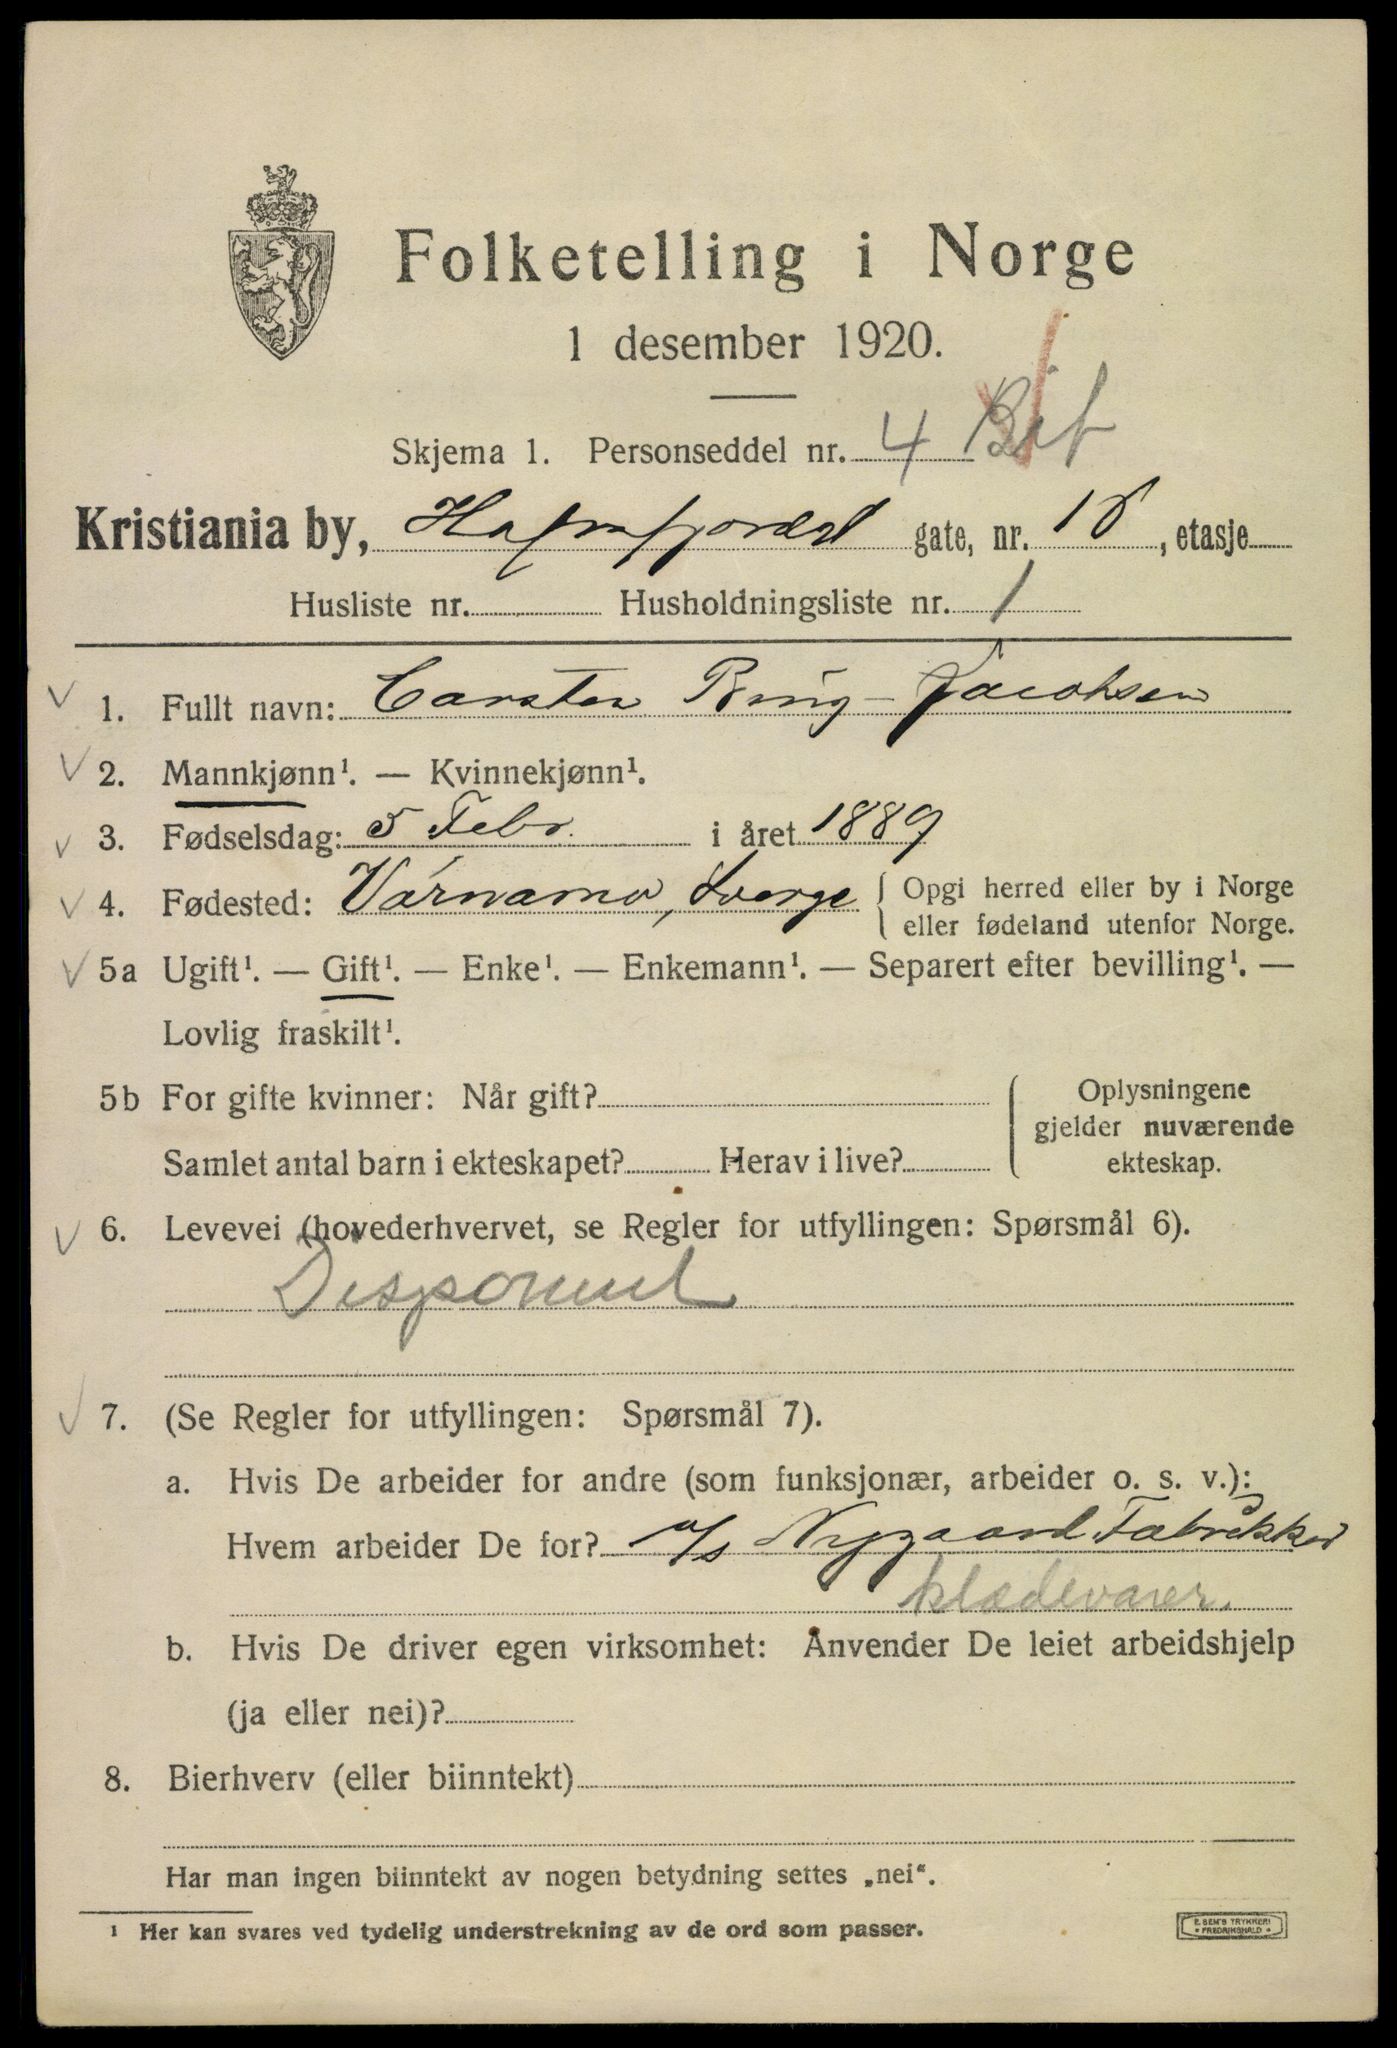 Folketelling i Norge
1 desember 1920.
Skjema 1. Personseddel nr. 4
Kristiania by, Hafrsfjords gate, nr. 18, etasje
Husliste nr. Husholdningsliste nr. 1
1. Fullt navn: Carsten Ring-Jacobsen
2. Mannkjønn¹. — Kvinnekjønn¹.
3. Fødselsdag: 5 Febr. i året 1889
4. Fødested: Värnamo, Sverge { Opgi herred eller by i Norge
eller fødeland utenfor Norge.
5a Ugift¹. — Gift¹. — Enke¹. — Enkemann¹. — Separert efter bevilling¹. —
Lovlig fraskilt¹.
5b For gifte kvinner: Når gift? Oplysningene
gjelder nuværende
Samlet antal barn i ekteskapet? Herav i live? ekteskap.
6. Levevei (hovederhvervet, se Regler for utfyllingen: Spørsmål 6).
Disponent
7. (Se Regler for utfyllingen: Spørsmål 7).
a. Hvis De arbeider for andre (som funksjonær, arbeider o. s. v.):
Hvem arbeider De for? a/s Nygaard Fabrikker
klædevarer.
b. Hvis De driver egen virksomhet: Anvender De leiet arbeidshjelp
(ja eller nei)?
8. Bierhverv (eller biinntekt)
Har man ingen biinntekt av nogen betydning settes „nei“.
¹ Her kan svares ved tydelig understrekning av de ord som passer.
E. SEM'S TRYKKERI
• FREDRIKSHALD •